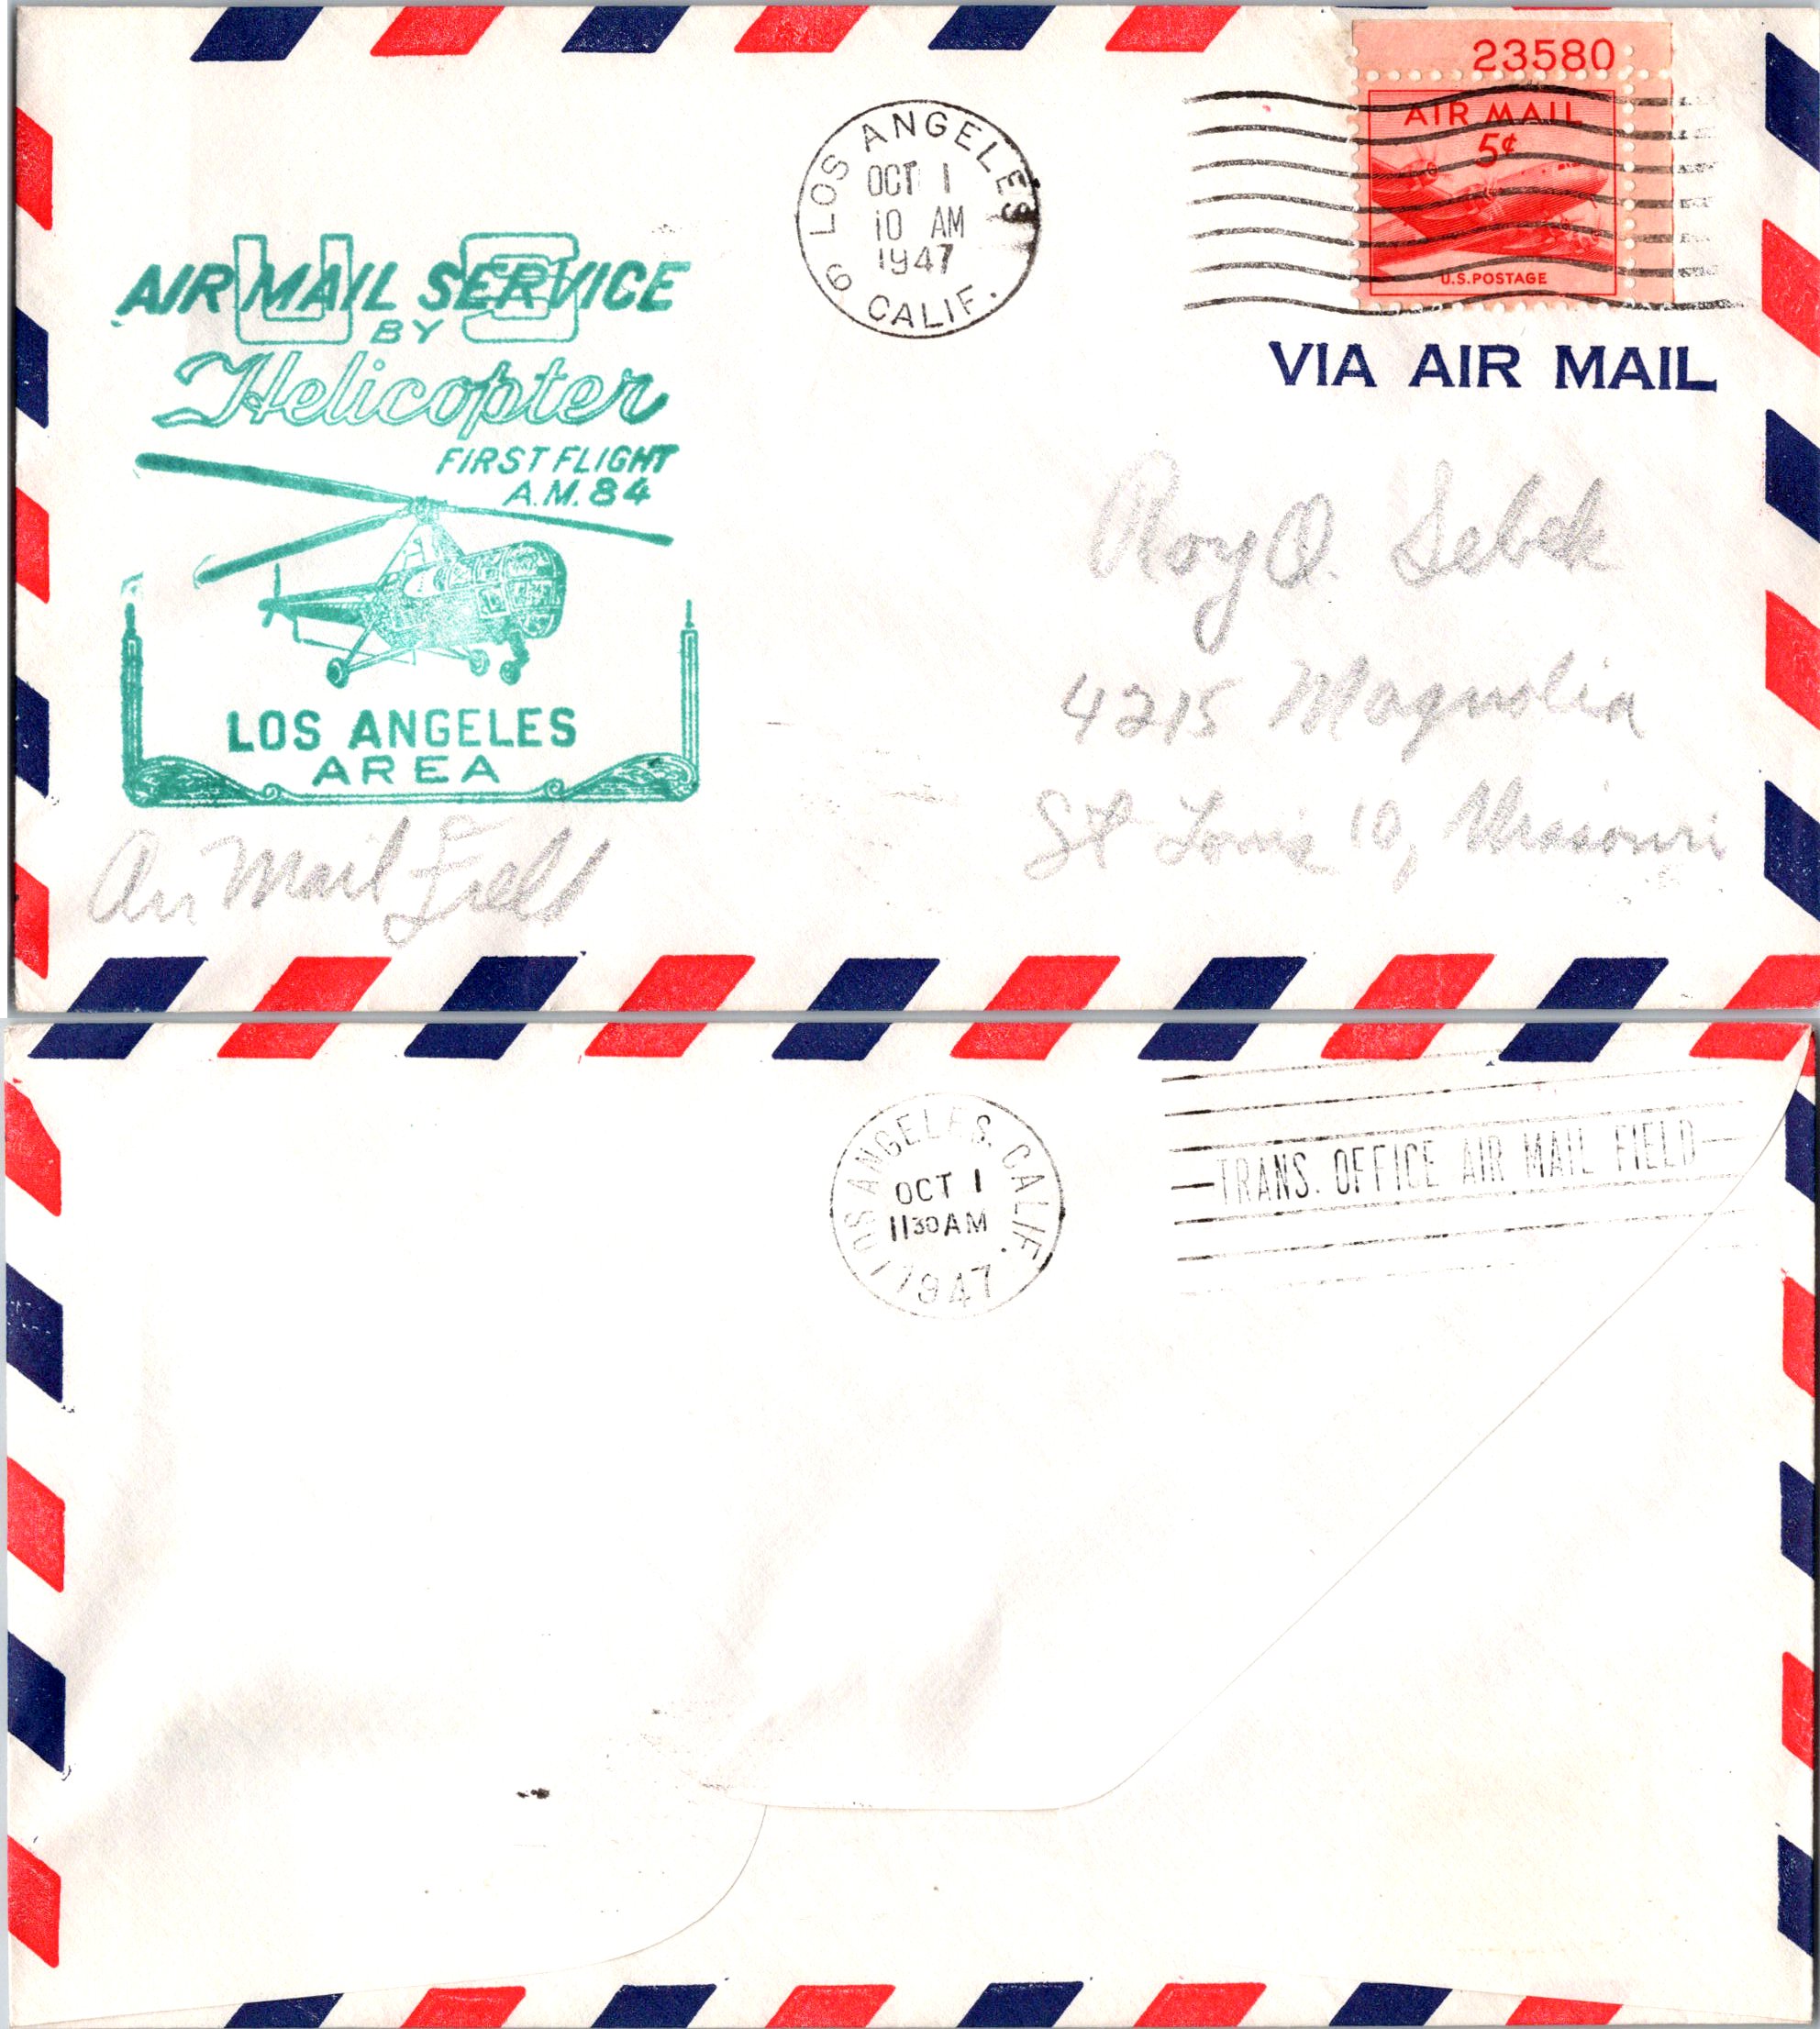 23580
AIR MAIL
5¢
U.S. POSTAGE
LOS ANGELES
OCT 1
10 AM
1947
6 CALIF.
VIA AIR MAIL
US
AIR MAIL SERVICE
BY
Helicopter
FIRST FLIGHT
A.M. 84
LOS ANGELES
AREA
Air Mail Field
Roy O. Sebek
4215 Magnolia
St Louis 10, Missouri
LOS ANGELES, CALIF.
OCT 1
1130 AM
1947
TRANS. OFFICE AIR MAIL FIELD